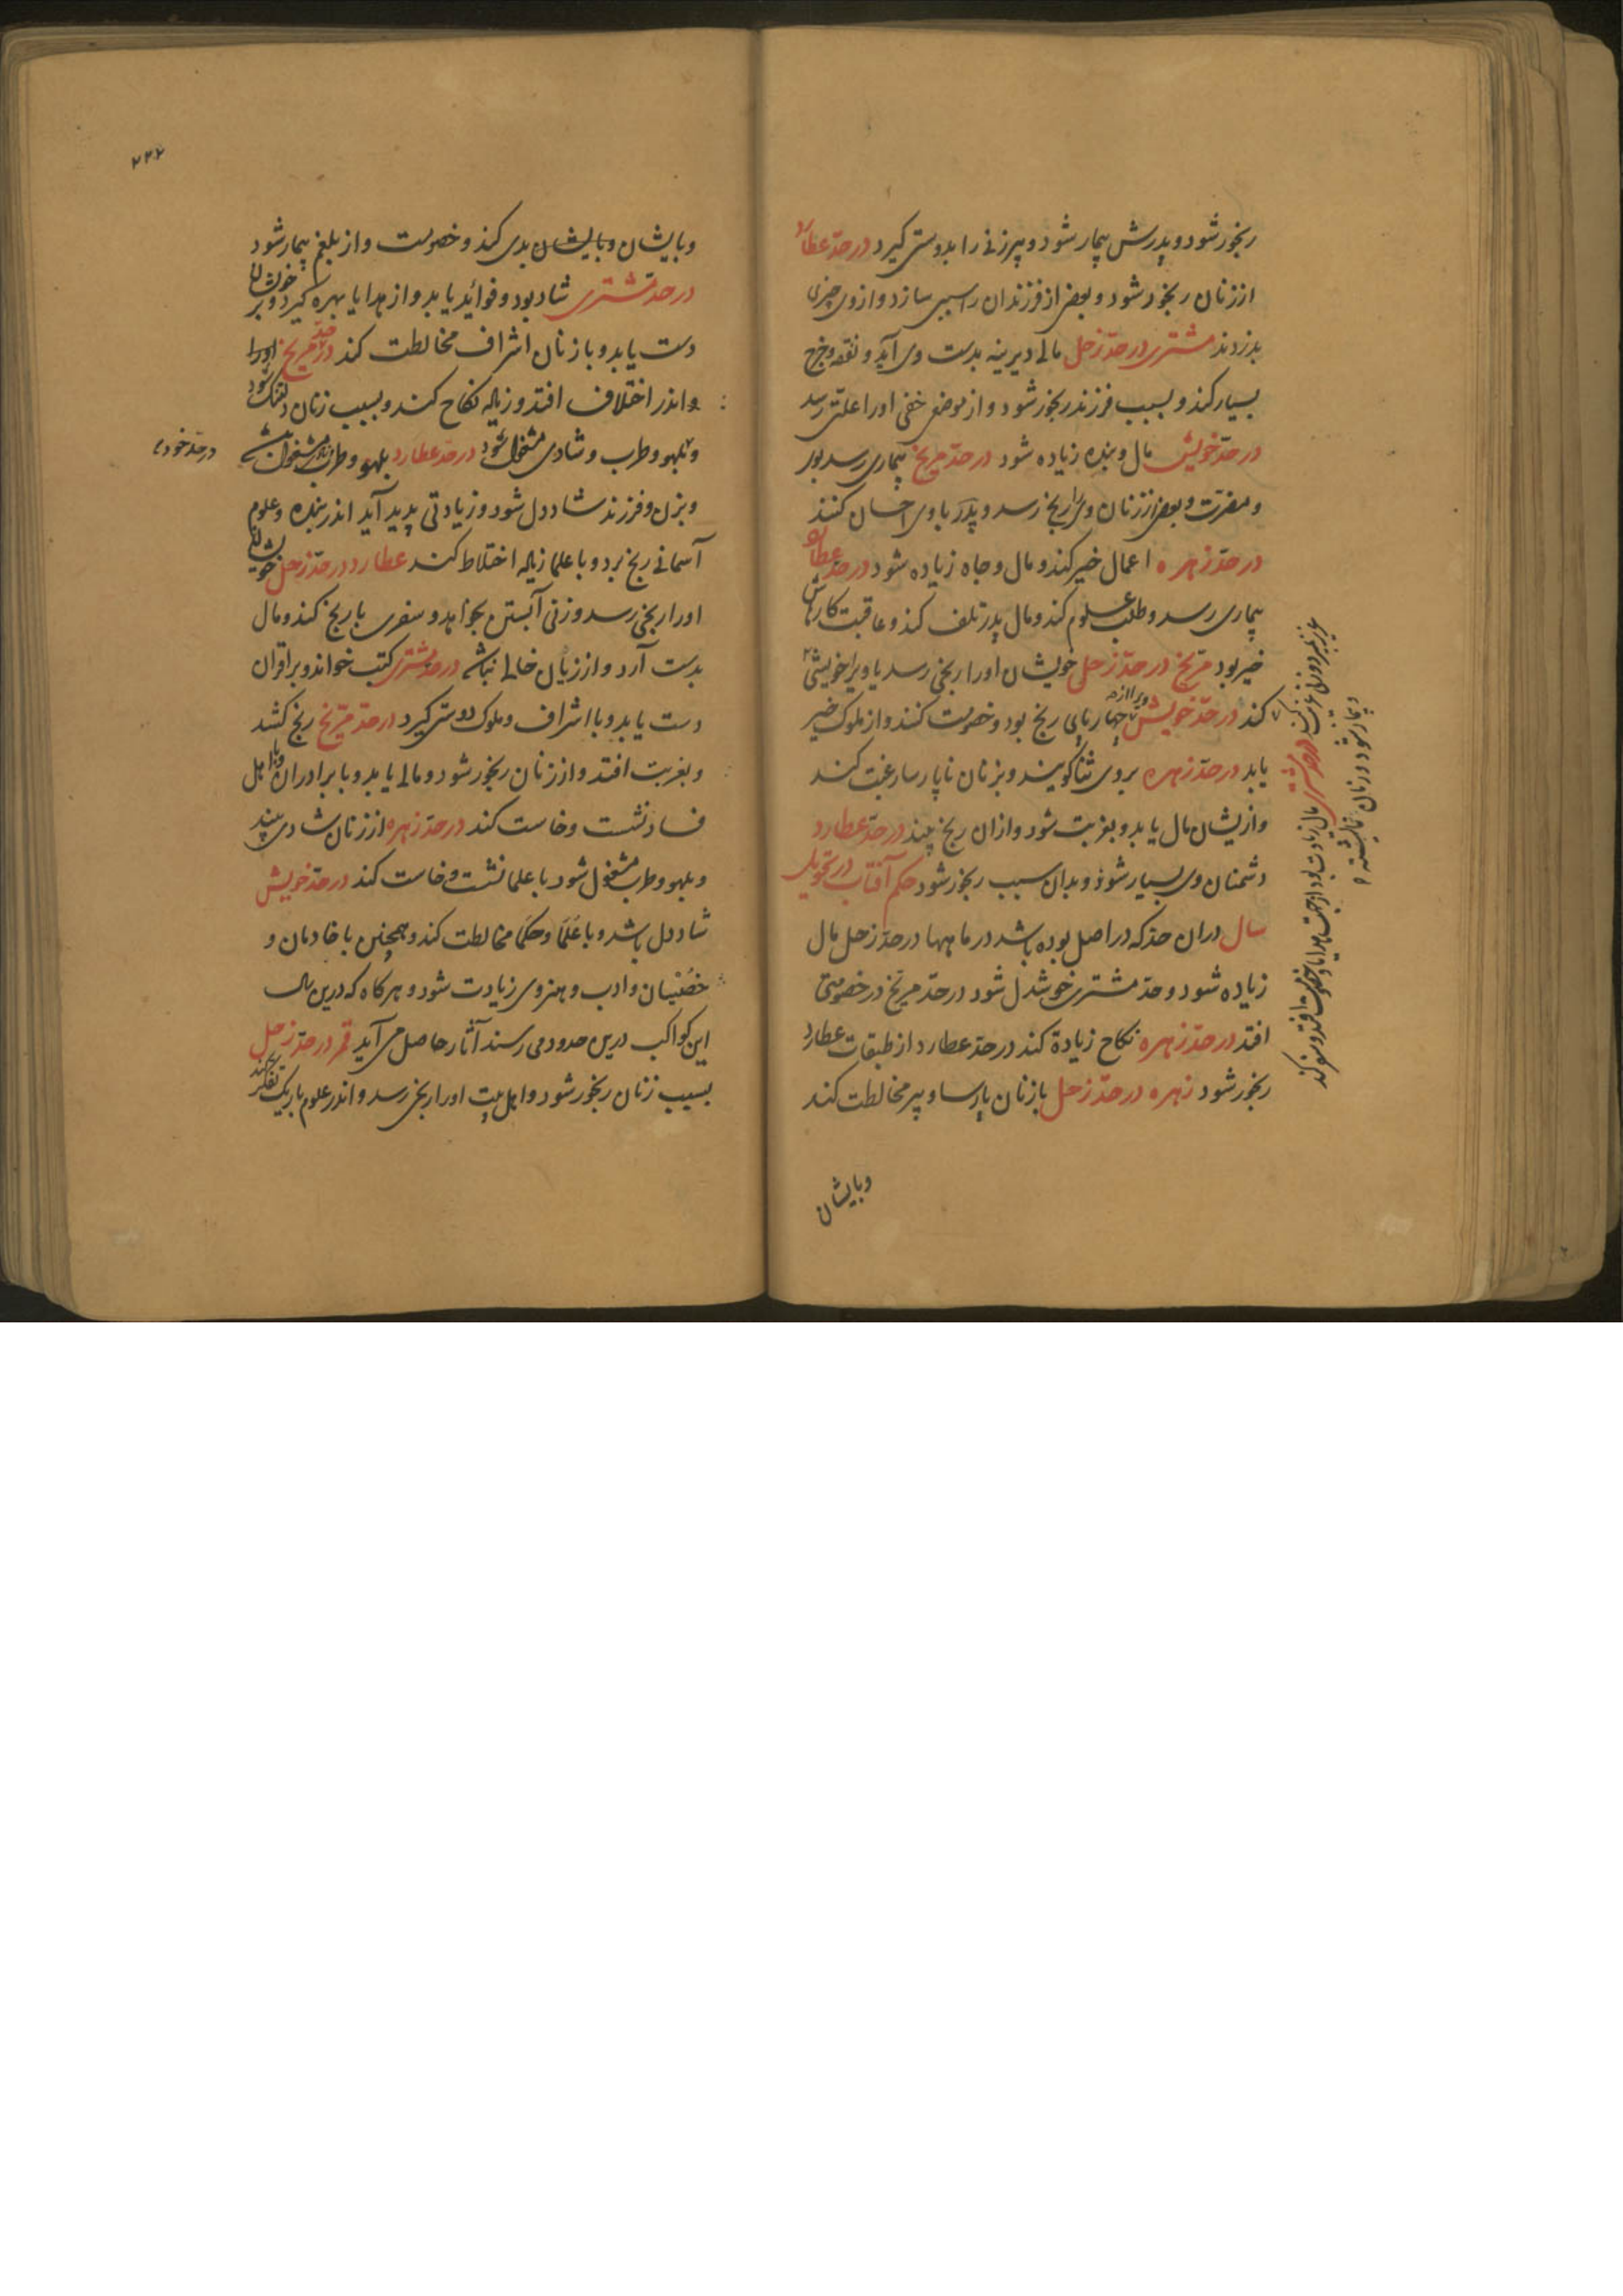 رنجور شود و پدرش بیمار شود و پیرزنی را بدوستی گیرد در حدّ عطارد
از زنان رنجور شود و بعضی از فرزندان را سببی سازد و از وی چیزی
بدزدند مشتری در حدّ زحل مالی دیرینه بدست وی آید و نفقه و خرج
بسیار کند و بسبب فرزند رنجور شود و از موضعی خفی او را علتی رسد
در حدّ خویش مال و بنده زیاده شود در حدّ مریخ بیماری رسد بوی
و مضرّت و بعضی از زنان وی را رنج رسد و پدر با وی احسان کنند
در حدّ زهره اعمال خیر کند و مال و جاه زیاده شود در حدّ عطارد
بیماری رسد و طلب علوم کند و مال پدر تلف کند و عاقبت کارهاش
خیر بود مریخ در حدّ زحل خویشان او را رنجی رسد یا ویرا خویشی
کند در حدّ خویش ویرا از چهارپای رنج بود و خصومت کنند و از ملوک خیر
یابد در حدّ زهره بر وی ثنا گویند و بزنان ناپارسا رغبت کند
و ازیشان مال یابد و بغربت شود و از آن رنج بیند در حدّ عطارد
دشمنان وی بسیار شود و بدان سبب رنجور شود حکم آفتاب در تحویل
سال در آن حدّ که در اصل بوده باشد در ماهها در حدّ زحل مال
زیاده شود و حدّ مشتری خوشدل شود در حدّ مریخ در خصومتی
افتد در حدّ زهره نکاح زیادة کند در حدّ عطارد از طبقات عطارد
رنجور شود زهره در حدّ زحل با زنان پارسا و پیر مخالطت کند
و بایشان
در حدّ مشتری مال زیادت بود از جهت هدایا و خصومت افتد و سفر کند
و بیمار شود و زنان
۲۴۲
و بایشان و بایشان بدی کند و خصومت و از بلغم بیمار شود
در حدّ مشتری شاد بود و فوائد یابد و از هدایا بهره گیرد و بر خویشان
دست یابد و با زنان اشراف مخالطت کند در حدّ مریخ او را
و اندر اختلاف افتد و زیاله نکاح کند و بسبب زنان دلتنگ شود
و بلهو و طرب و شادی مشغول شود در حدّ عطارد بلهو و طرب مشغول باشد
در حدّ خود
و بزن و فرزند شاددل شود و زیادتی پدید آید اندر بنده و علوم
آسمانی رنج برد و با علما زیاله اختلاط کند عطارد در حدّ زحل خویشان
او را رنجی رسد و زنی آبستن بخواهد و سفری با رنج کند و مال
بدست آرد و از زیان خالی نباشد در حدّ مشتری کتب خواند و بر اقران
دست یابد و با اشراف و ملوک دوستی گیرد در حدّ مریخ رنج کشد
و بغربت افتد و از زنان رنجور شود و مالی یابد و با برادران و با اهل
فساد نشست و خاست کند در حدّ زهره از زنان شادی بیند
و بلهو و طرب مشغول شود با علما نشست و خاست کند در حدّ خویش
شاددل باشد و با علما و حکما مخالطت کند و همچنین با خادمان و
خصیان و ادب و هنر وی زیادت شود و هرگاه که درین سال
این کواکب درین حدود می رسند آثار حاصل می آید قمر در حدّ زحل
بسبب زنان رنجور شود و اهل بیت او را رنجی رسد و اندر علوم باریک تفکر کند